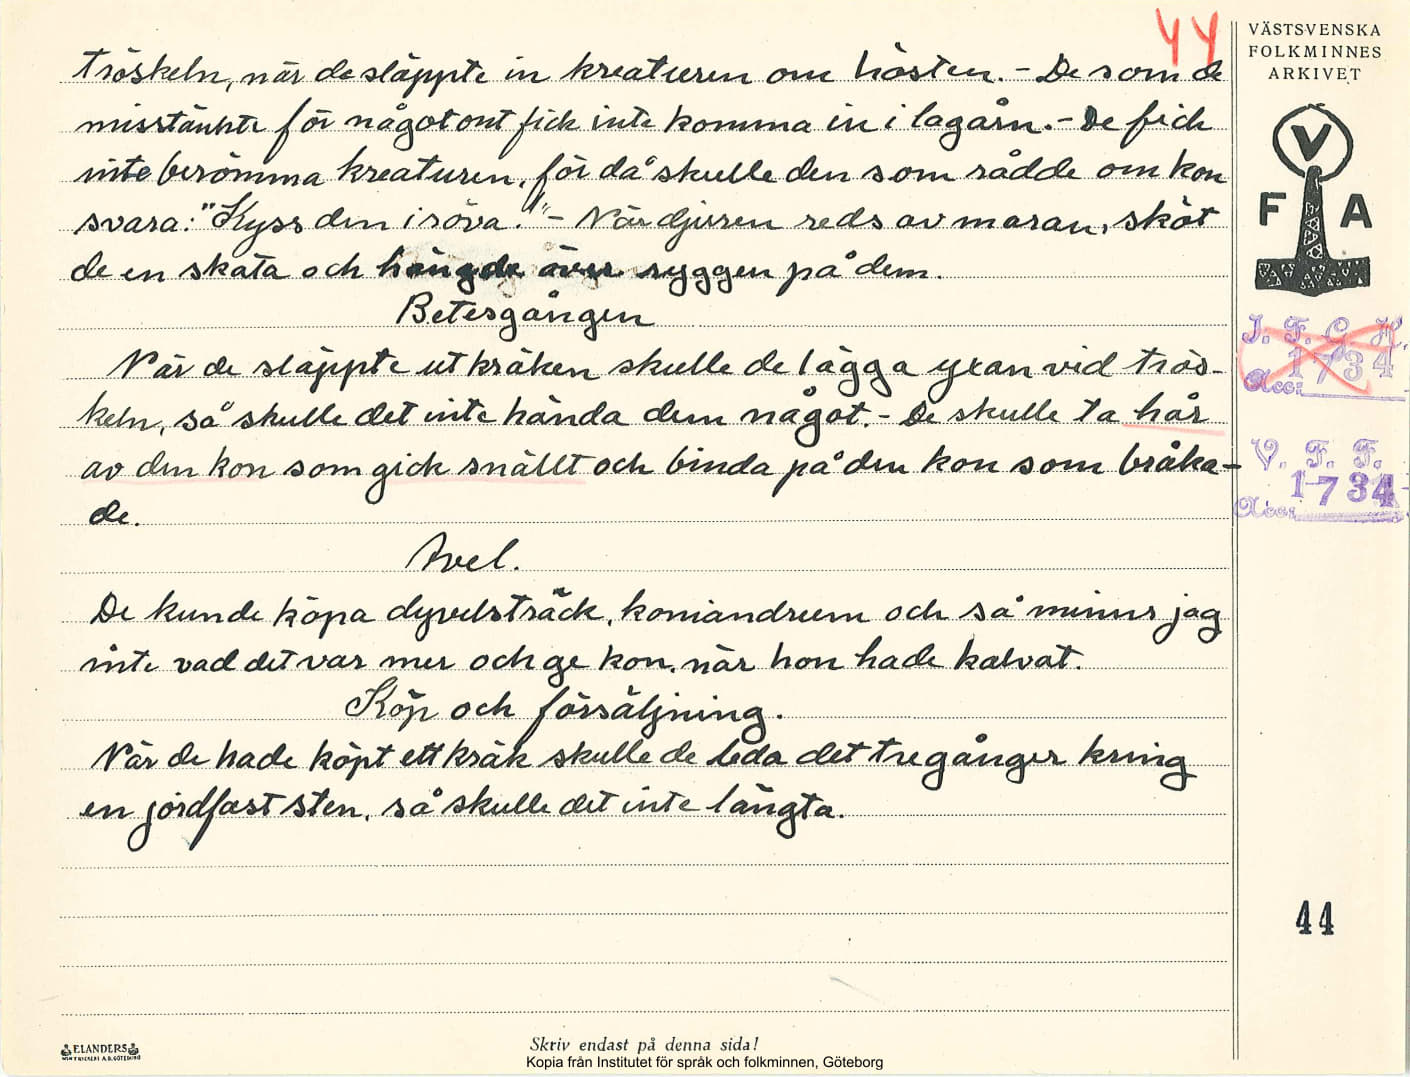 44
VÄSTSVENSKA
FOLKMINNES
ARKIVET
tröskeln, när de släppte in kreaturen om hösten. - De som de
misstänkte för något ont fick inte komma in i lagårn. - De fick
inte berömma kreaturen, för då skulle den som rådde om kon
svara: "Kyss den i röva!" - När djuren reds av maran, sköt
de en skata och hängde över ryggen på dem.
Betesgången
När de släppte ut kräken skulle de lägga yxan vid trös-
keln, så skulle det inte hända dem något. - De skulle ta hår
av den kon som gick snällt och binda på den kon som bråka-
de.
Avel.
De kunde köpa dyvelsträck, koriandrum och så minns jag
inte vad det var mer och ge kon, när hon hade kalvat.
Köp och försäljning.
När de hade köpt ett kräk skulle de leda det tre gånger kring
en jordfast sten, så skulle det inte längta.
V
F A
I. F. G. H.
1734
Acc:
V. F. F.
1734
Acc:
44
ELANDERS
Skriv endast på denna sida!
Kopia från Institutet för språk och folkminnen, Göteborg